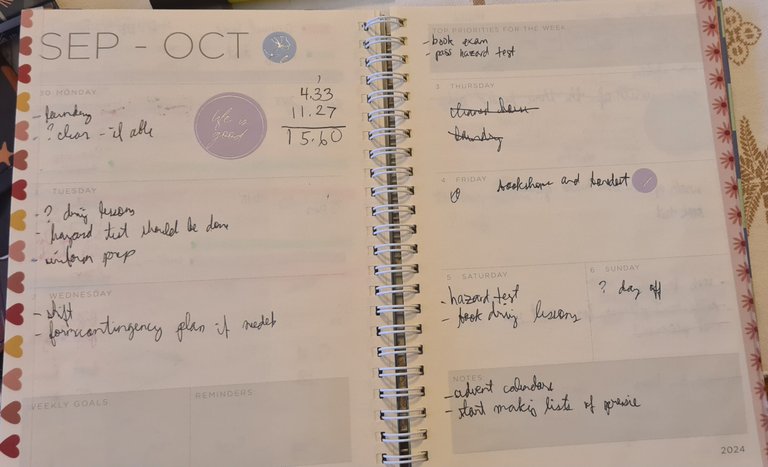 SEP - OCT
30 MONDAY
- laundry
- ? clean - if able
life is
good
1
4.33
11.27
15.60
1 TUESDAY
- ? driving lessons
- hazard test should be done
- uniform prep
2 WEDNESDAY
- shift
- form contingency plan if needed
WEEKLY GOALS
REMINDERS
TOP PRIORITIES FOR THE WEEK
- book exam
- pass hazard test
3 THURSDAY
laundry
4 FRIDAY
bookshope and
5 SATURDAY
- hazard test
- book driving lessons
6 SUNDAY
? day off
NOTES
- advent calendars
- start making lists of
2024